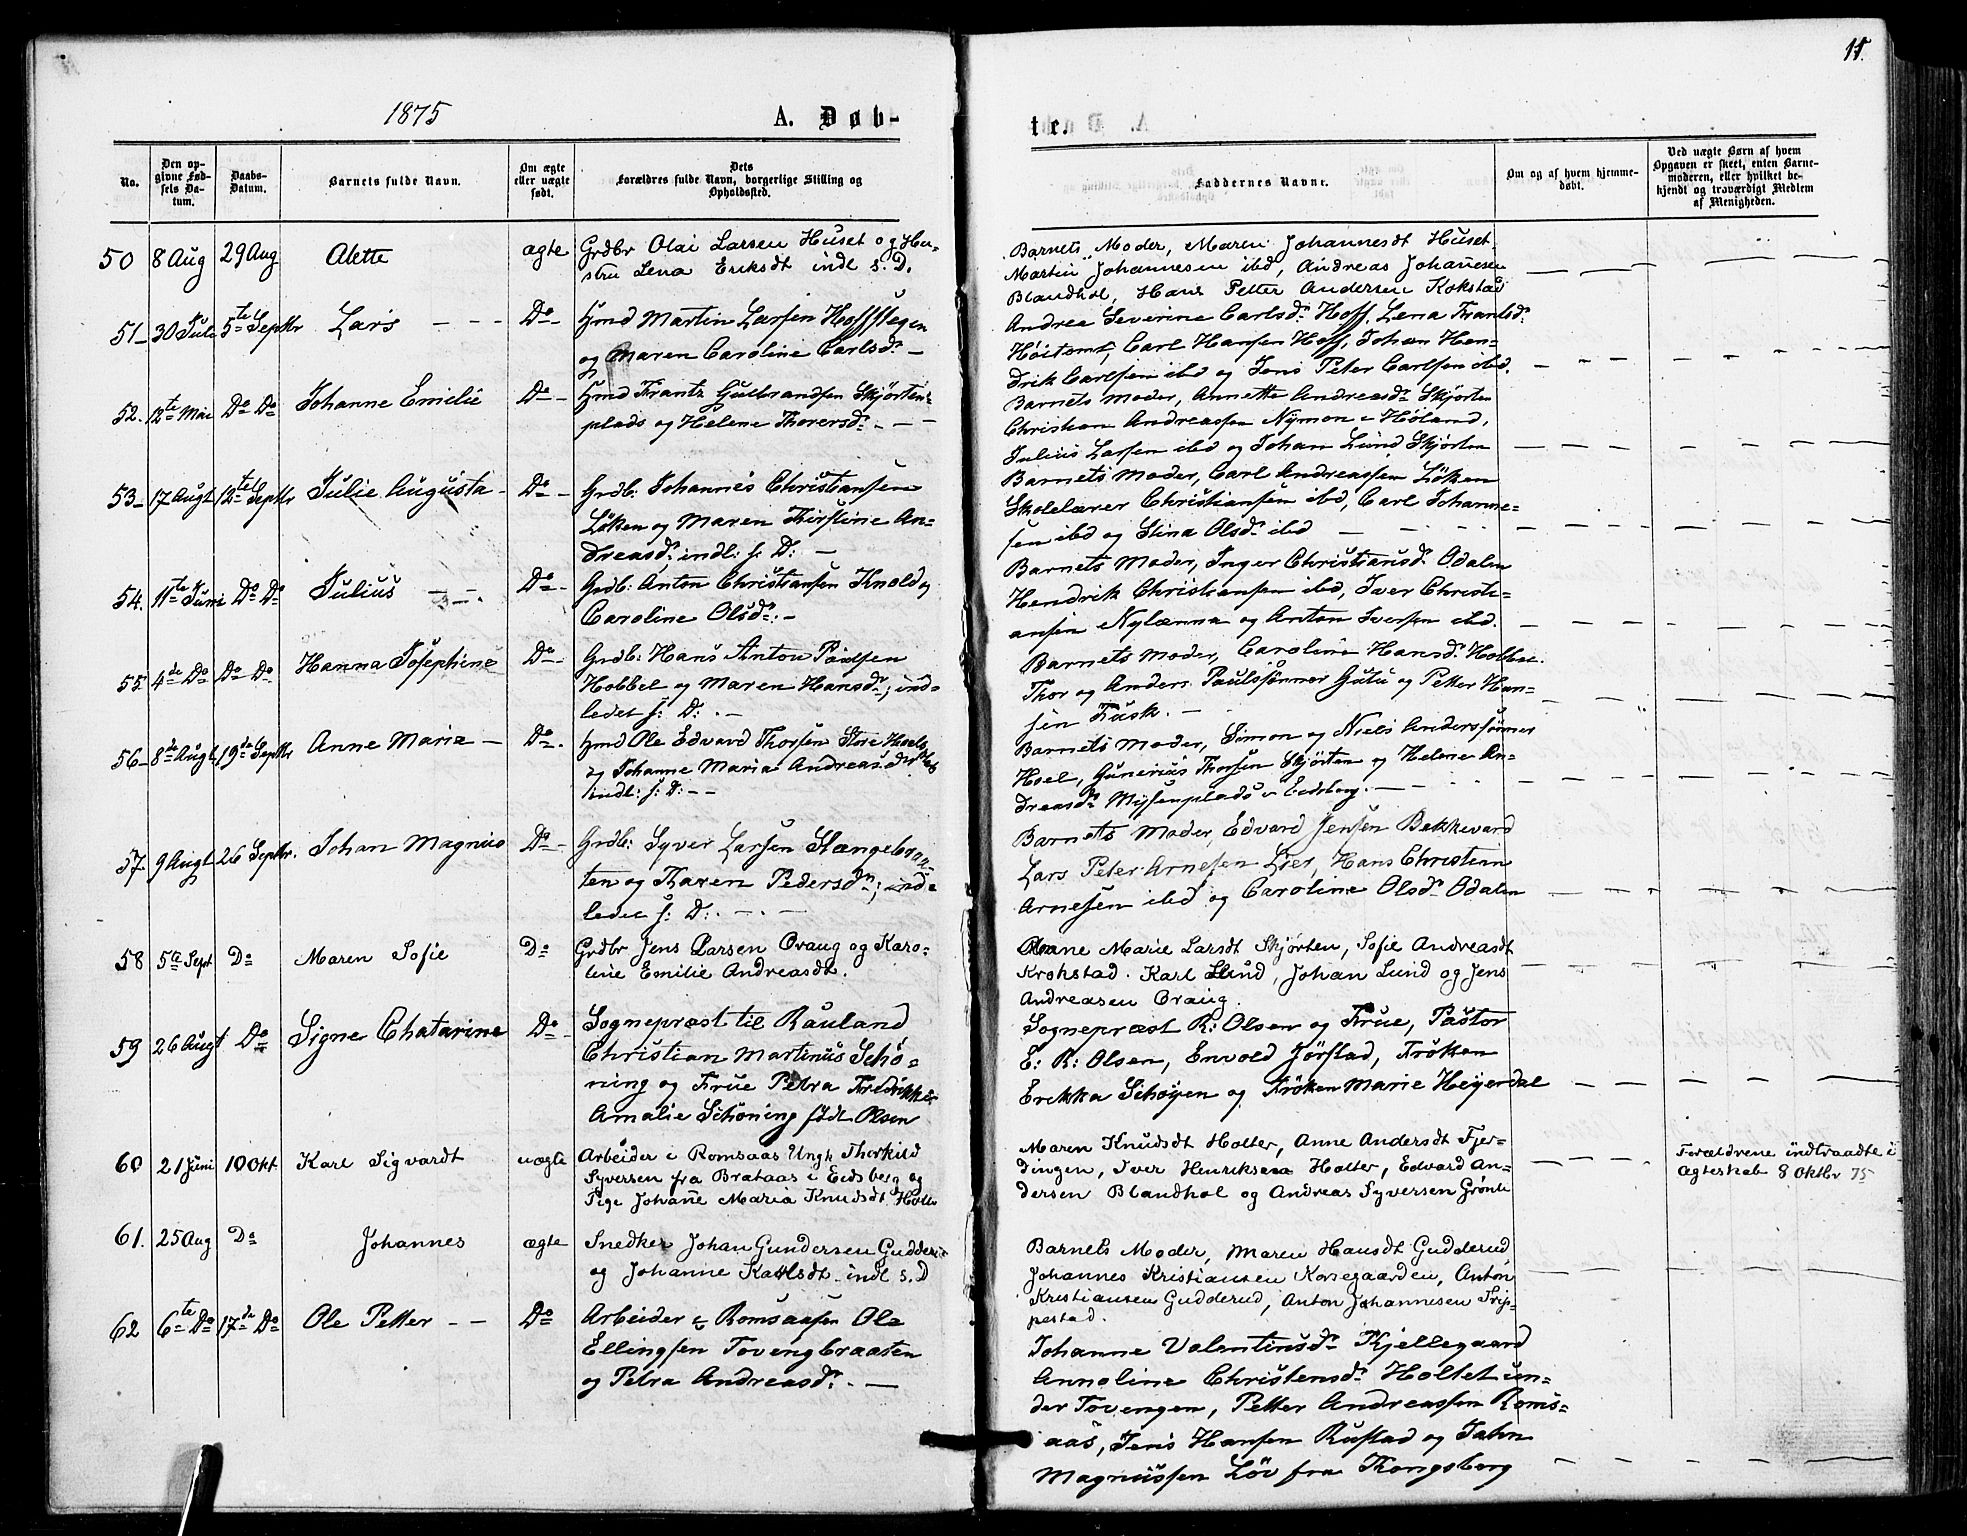 11.
1875
A. Døb-
te.
No.
Den op-
givne Fød-
sels Da-
tum.
Daabs-
Datum.
Barnets fulde Navn.
Om ægte
eller uægte
født.
Dets
Forældres fulde Navn, borgerlige Stilling og
Opholdssted.
Faddernes Navne.
Om og af hvem hjemme-
døbt.
Ved uægte Børn af hvem
Opgaven er skeet, enten Barne-
moderen, eller hvilket be-
kjendt og troværdigt Medlem
af Menigheden.
50 8 Aug 29 Aug Alette ægte Grdbr Olai Larsen Huset og Hu-
stru Lena Eriksdt indl s. D.
Barnets Moder, Maren Johannesdt Huset
Martin Johannesen ibd, Andreas Johañesen
Blandhol, Hans Petter Andersen Kokstad
51 - 30 Juli 5te Septbr Lars - - - Do - Hmd Martin Larsen Hoffstegen
og Maren Caroline Carlsdr -
Andrea Severine Carlsdr Hoff, Lena Frantsdr
Høitomt, Carl Hansen Hoff, Johan Hen-
drik Carlsen ibd og Jens Peter Carlsen ibd.
52. 12te Mai Do Do Johanne Emilie Do - Hmd Frantz Gulbrandsen Skjørten-
plads og Helene Thorersdr - - -
Barnets Moder, Annette Andreasdr Skjørten
Christian Andreassen Nymon i Høland,
Julius Larsen ibd og Johan Lund Skjørten
53 - 17 Augt 12te Septbr Julie Augusta - Do - Grdb: Johannes Christiansen
Løken og Maren Kirstine An-
dreasdr indl: s: D: -
Barnets Moder, Carl Andreassen Løken
Skolelærer Christiansen ibd, Carl Johanne-
sen ibd og Stina Olsdr ibd
54. 11te Juni Do Do Julius - - . Do - Grdb: Anton Christiansen Knold og
Caroline Olsdr. -
Barnets Moder, Inger Christiansdr Odalen
Hendrik Christiansen ibd, Iver Christi-
ansen Nylænna og Anton Iversen ibd.
55. 4de Do Do Do Hanna Josephine Do - Grdb: Hans Anton Paulsen
Hobbel og Maren Hansdr; ind-
ledet s: D: . -
Barnets Moder, Caroline Hansdr Holtene.
Thor og Anders Paulssønner Gutu og Petter Han-
sen Kusk. -
56 - 8de Augt 19de Septbr Anne Marie - Do - . Hmd Ole Edvard Thorsen Store Hoel
og Johanne Maria Andreasdr
indl: s: D: - -
Barnets Moder, Simon og Niels Anderssønner
Hoel, Gunerius Thorsen Skjørten og Helene An-
dreasdr Mysenplads i Eidsberg. -
57. 9 Augt 26 Septbr. Johan Magnus Do - Grdb: Syver Larsen Slængebraa-
ten og Karen Pedersdr; ind-
ledet s: D: . - . -
Barnets Moder, Edvard Jensen Bekkevard
Lars Peter Arnesen Lier, Hans Christian
Arnesen ibd og Caroline Olsdr Odalen
58 5te Sept Do Maren Sofie Do Grdbr Jens Larsen Oraug og Karo-
line Emilie Andreasdt.
Anne Marie Larsdt Skjørten, Sofie Andreasdt
Krokstad. Karl Lund, Johan Lund og Jens
Andreasen Oraug.
59 26 Augt Do Signe Chatarine Do - Sognepræst til Rauland
Christian Martinus Schø-
ning og Frue Petra Fredrikke
Amalie Schøning født Olsen
Sognepræst R: Olsen og Frue, Pastor
E: R: Olsen, Envold Jørstad, Frøken
Erikka Schøyen og Frøken Marie Heyerdal
60 21 Juni 10 Okt. Karl Sigvardt uægte Arbeider i Romsaas Ungk Thorkild
Syversen fra Brataas i Eidsberg og
Pige Johañe Maria Knudsdt Holter
Maren Knudsdt Holter, Anne Andersdt Fjer-
dingen, Iver Henriksen Holter, Edvard An-
dersen Blandhol og Andreas Syversen Grønli
Forældrene indtraadte i
Ægteskab 8 Oktbr 75
61. 25 Aug Do Johannes ægte Snedker Johan Gundersen Gudderud
og Johanne Karlsdt indl s. D
Barnets Moder, Maren Hansdt Gudderud
Johannes Kristiansen Korsegaarden, Anton
Kristiansen Gudderud, Anton Johannesen Trip-
pestad.
62 6te Do 17de Do Ole Petter - - Do Arbeider i Romsaasen Ole
Ellingsen Tovengbraaten
og Petra Andreasdr. -
Johanne Valentinsdr Kjellegaard
Annoline Christensdr Holtet un-
der Tovengen, Petter Andreassen Roms-
aas, Jens Hansen Rustad og John
Magnussen Løv fra Kongsberg